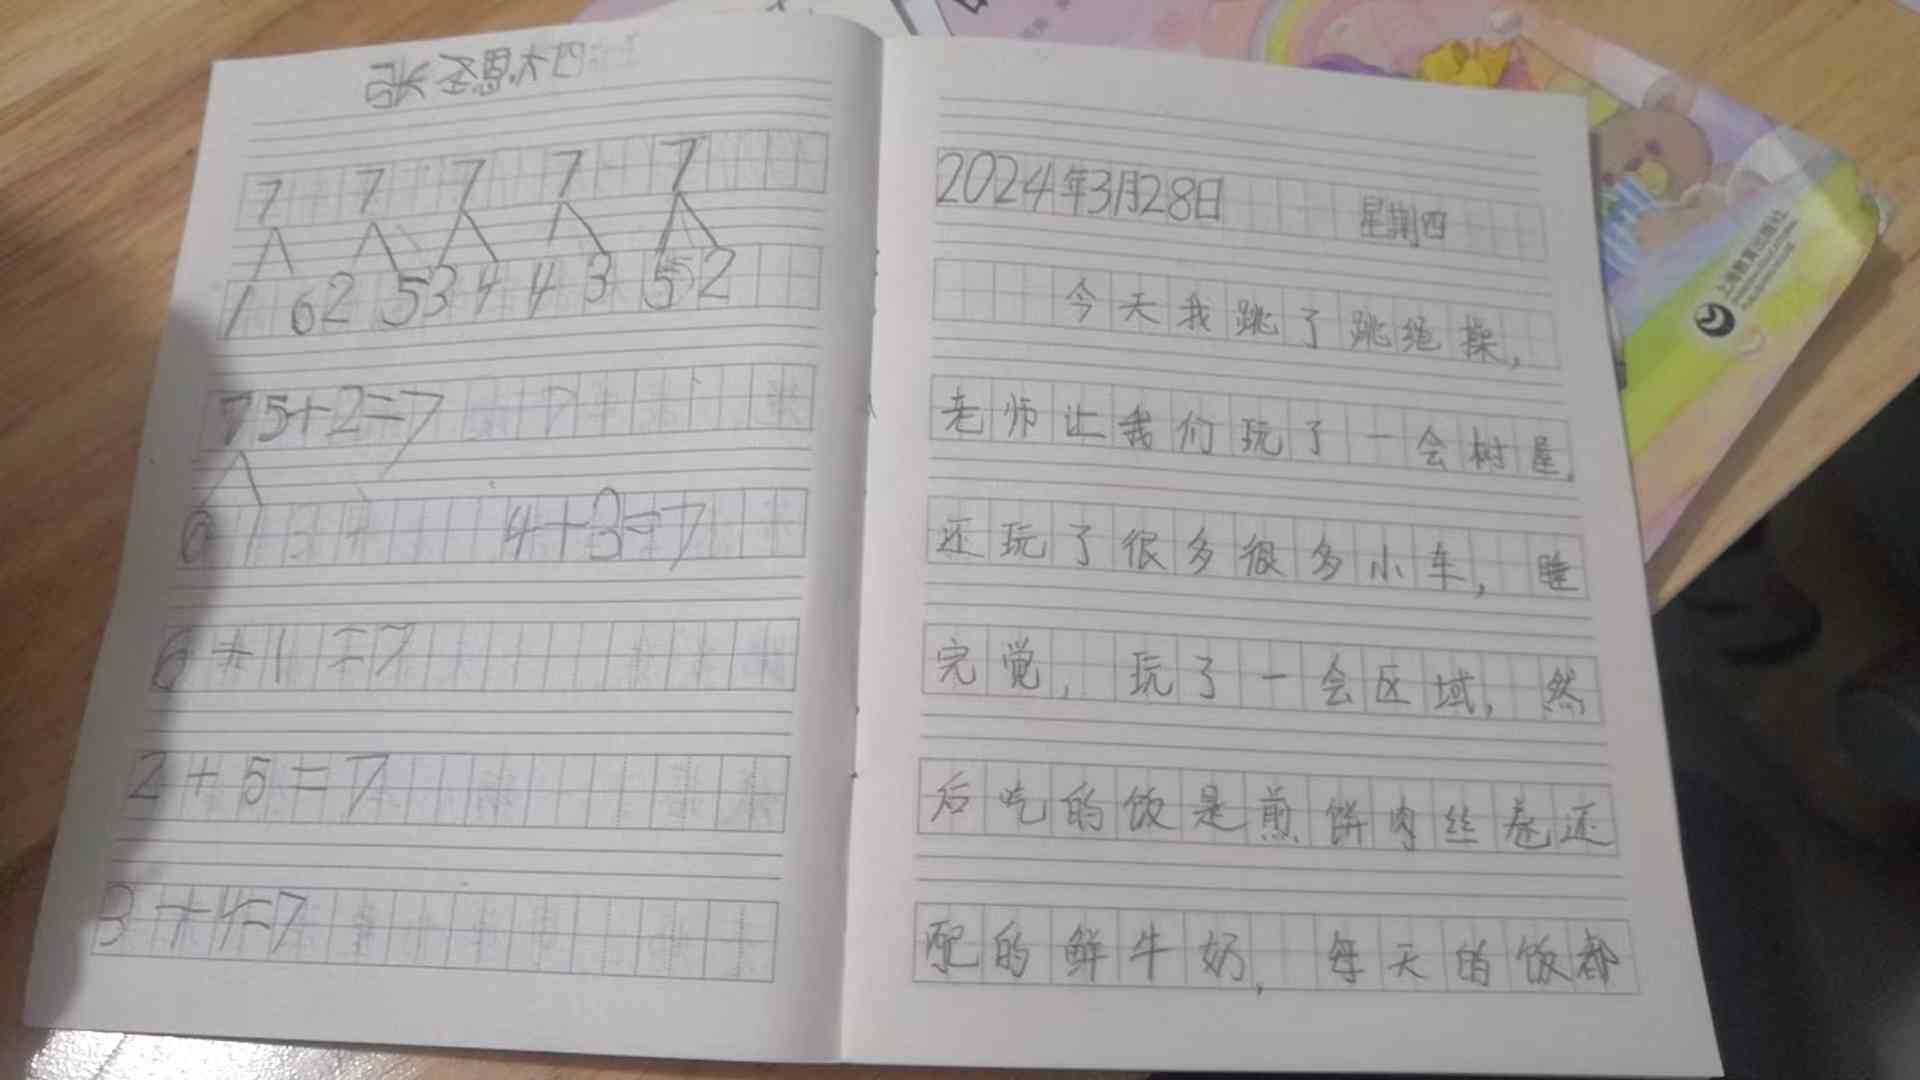 张圣恩大四
7 7 7 7 7
1 6 2 5 3 4 4 3 5 2
7 5+2=7
6 1 4+3=7
6+1=7
2+5=7
3+4=7
2024年3月28日 星期四
今天我跳了跳绳操,
老师让我们玩了一会树屋.
还玩了很多很多小车, 睡
完觉, 玩了一会区域, 然
后吃的饭是煎饼肉丝卷还
配的鲜牛奶, 每天的饭都
上海教育出版社